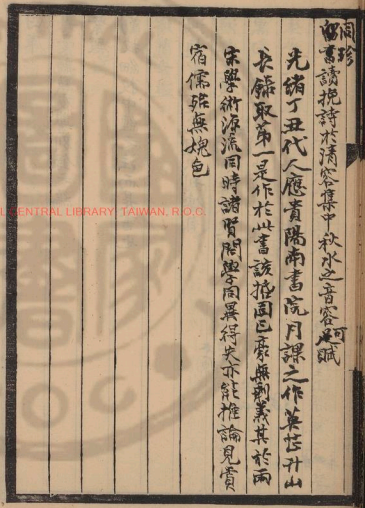 書讀挽詩於清容集中秋水之音容何賦
光緒丁丑代人應貴陽南書院月課之作莫芷升山
長錄取第一是作於此書該括固已毫無剩義其於兩
宋學術源流同時諸賢問學同異得失亦能推論見賞
宿儒殆無媿色
CENTRAL LIBRARY TAIWAN, R.O.C.